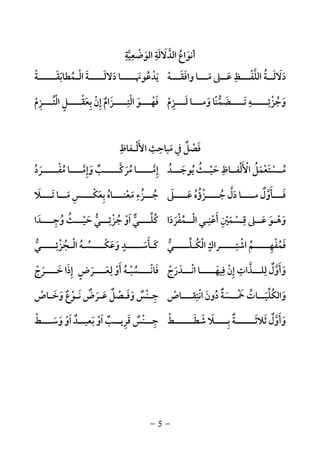 أَنوَاعُ الدَّلَالَةِ الوَضْعِيَّةِ
دَلَالَةُ اللَّفْظِ عَلى مَا وافَقَهْ يَدْعُونَهَا دَلالَةَ الْمُطابَقَةْ
وَجُزْئِهِ تَضَمُّنًا وَما لَزِمْ فَهْوَ الْتِزَامٌ إِنْ بِعَقْلٍ الْتُزِمْ
فَصْلٌ فِي مَباحِثِ الأَلْفاظِ
مُسْتَعْمَلُ الْأَلْفاظِ حَيْثُ يُوجَدُ إِمَّا مُرَكَّبٌ وَإِمَّا مُفْرَدُ
فَأَوَّلٌ ما دَلَّ جُزْؤُهُ عَلَى جُزْءِ مَعْناهُ بِعَكْسِ مَا تَلَا
وَهْوَ عَلى قِسْمَيْنِ أَعْنِي الْمُفْرَدَا كُلِّيٌّ اَوْ جُزْئِيُّ حَيْثُ وُجِدَا
فَمُفْهِمُ اشْتِراكٍ الْكُلِّيُّ كَأَسَدٍ وَعَكْسُهُ الْجُزْئِيُّ
وَأَوَّلٌ لِلذَّاتِ إِنْ فِيهَا انْدَرَجْ فَانْسُبْهُ أَوْ لِعَرَضٍ إِذَا خَرَجْ
وَالكُلِّيَّاتُ خَمْسَةٌ دُونَ انْتِقاصْ جِنْسٌ وَفَصْلٌ عَرَضٌ نَوْعٌ وَخَاصْ
وَأَوَّلٌ ثَلاثَةٌ بِلَا شَطَطْ جِنْسٌ قَرِيبٌ اَوْ بَعيدٌ اَوْ وَسَطْ
- 5 -